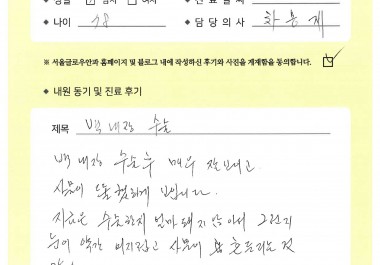 • 성별 ☑ 남자 □ 여자 • 진료날짜
• 나이 • 담당의사 차흥제
※ 서울글로우안과 홈페이지 및 블로그 내에 작성하신 후기와 사진을 게재함을 동의합니다. ☑
• 내원 동기 및 진료 후기
제목 백내장 수술
백내장 수술 후 매우 잘보이고
사물이 또렷하게 보입니다.
지금은 수술한지 얼마 돼지 않아서 그런지
눈이 약간 어지럽고 사물이 흔들리는 것